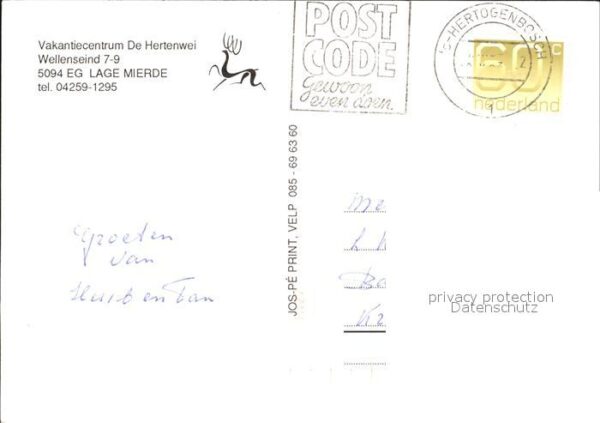 Vakantiecentrum De Hertenwei
Wellenseind 7-9
5094 EG LAGE MIERDE
tel. 04259-1295
POST
CODE
Gewoon
even doen.
's-HERTOGENBOSCH
1
60 c
nederland
JOS-PÉ PRINT, VELP 085 - 69 63 60
Groeten
van
Huib en
Me
L
Be
privacy protection
Datenschutz